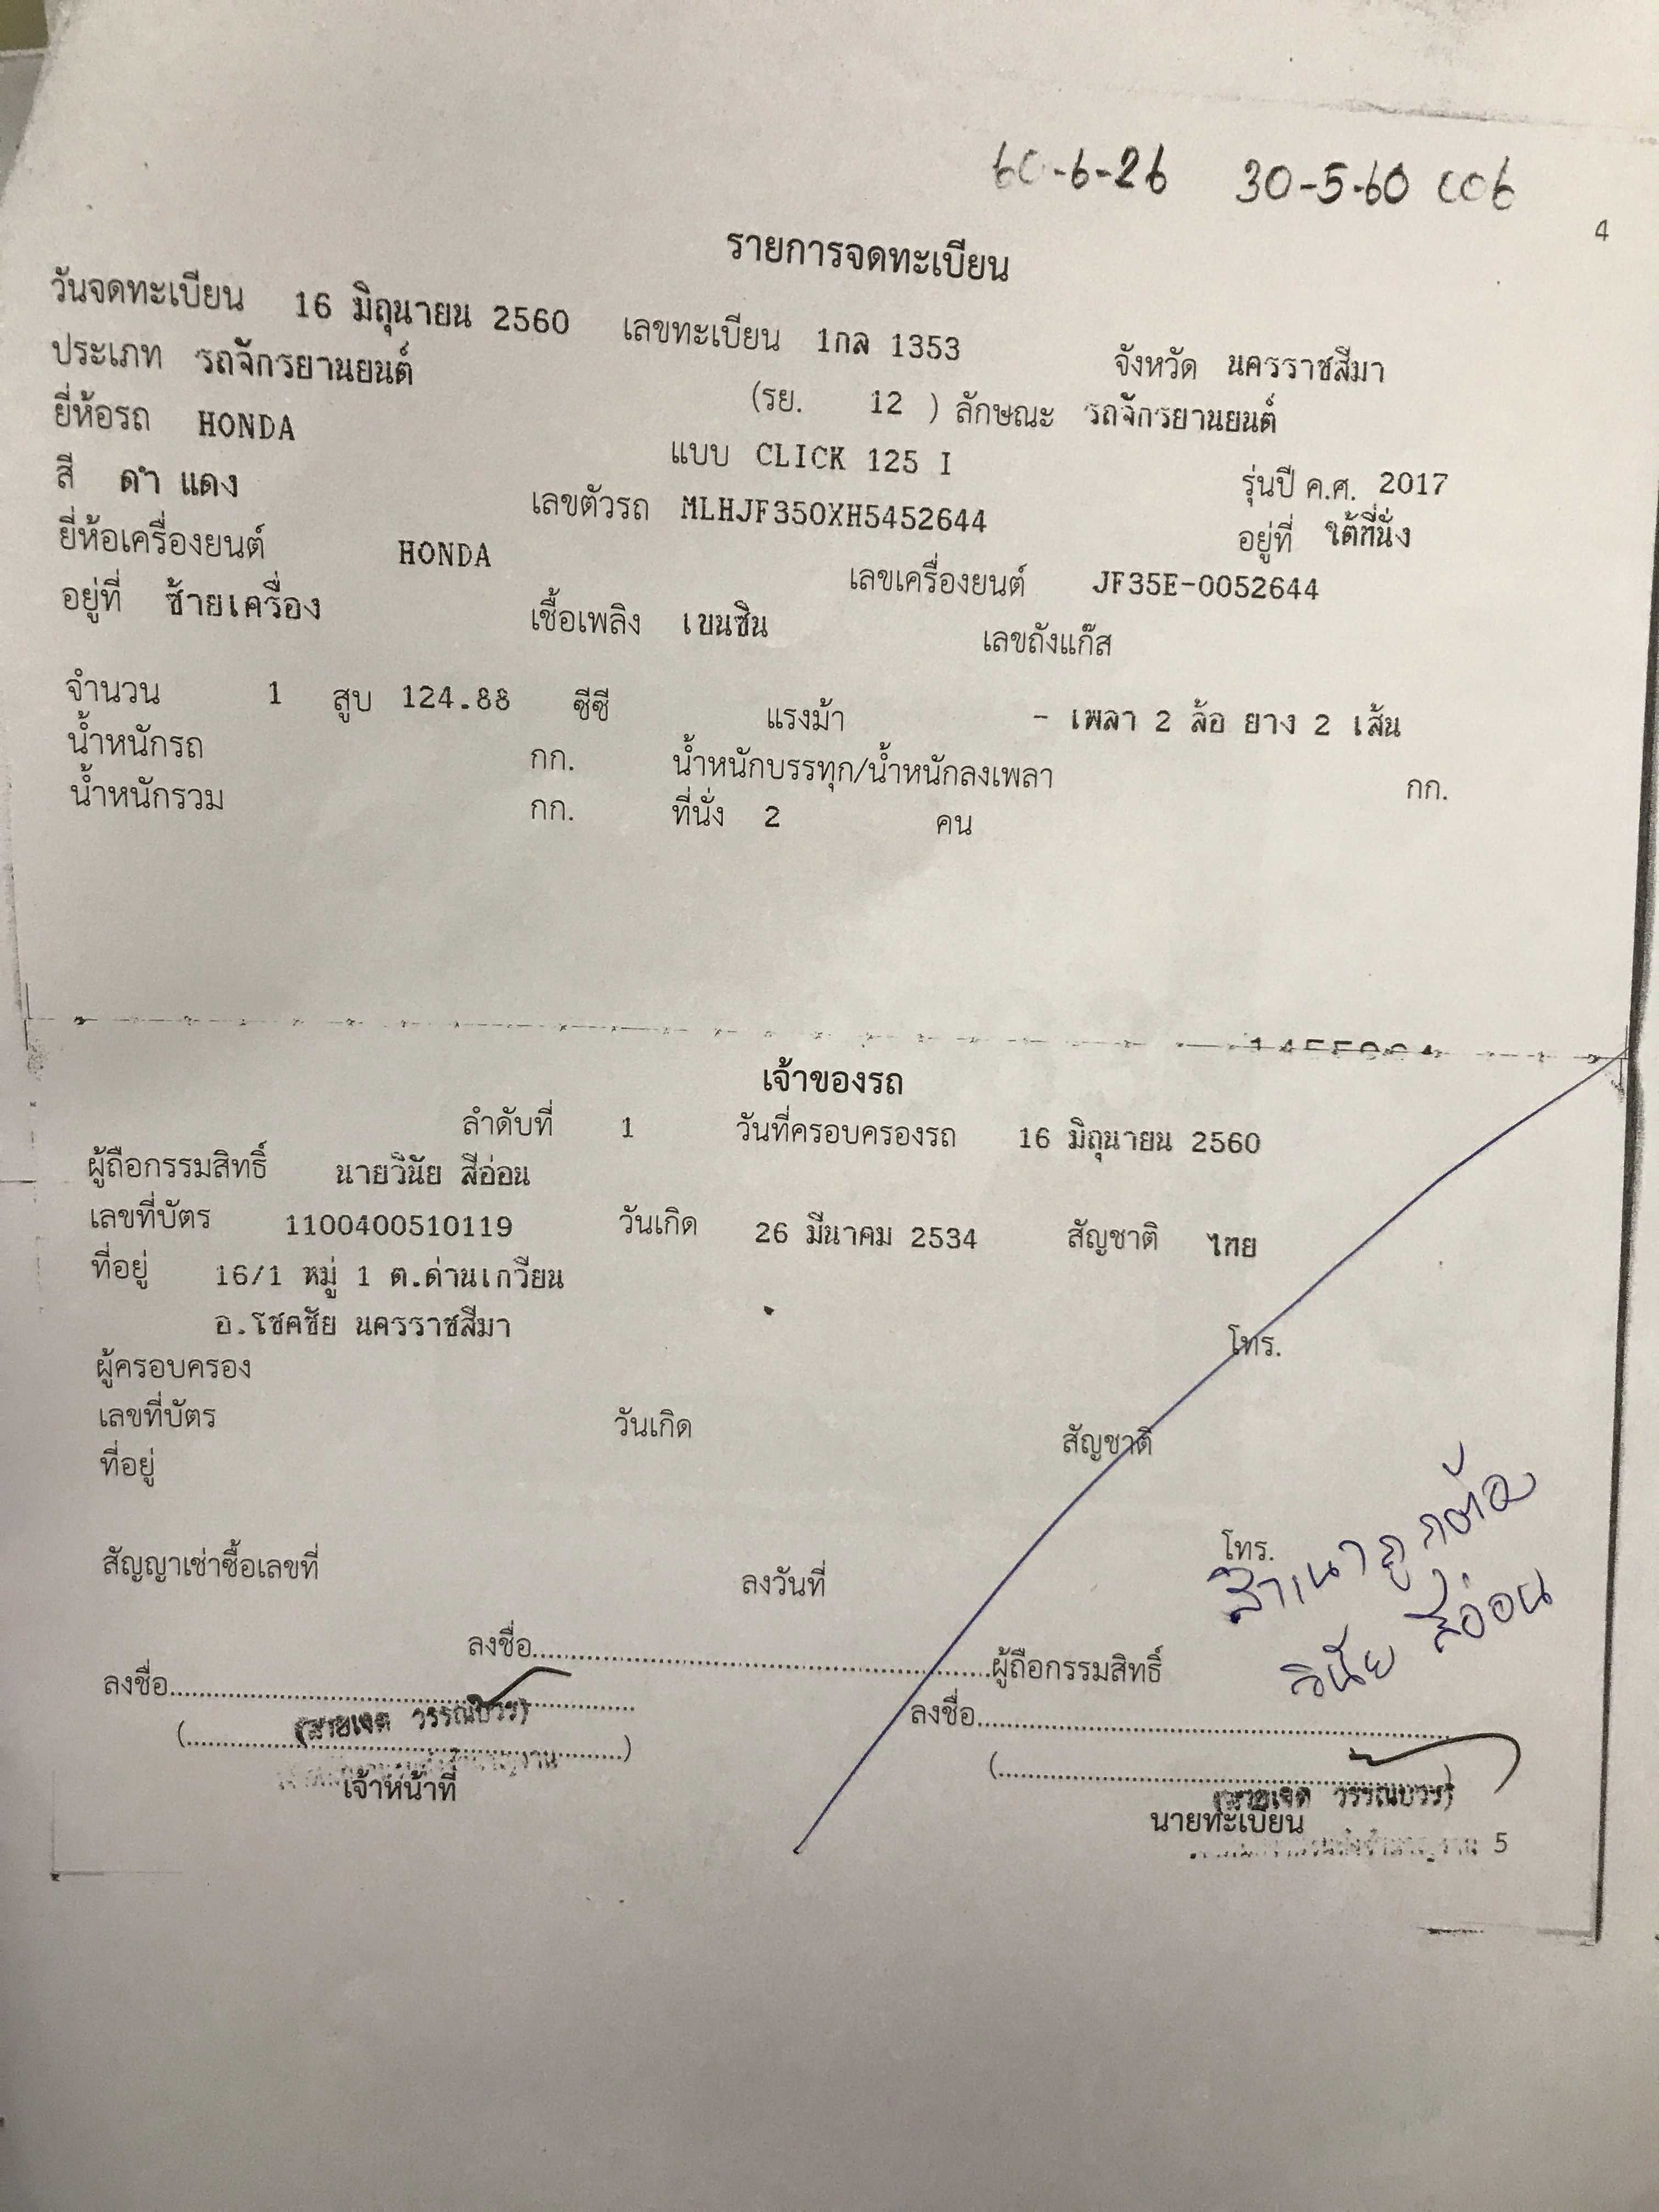 60-6-26 30-5-60 006
4
รายการจดทะเบียน
วันจดทะเบียน 16 มิถุนายน 2560 เลขทะเบียน 1กล 1353 จังหวัด นครราชสีมา
ประเภท รถจักรยานยนต์ (รย. 12 ) ลักษณะ รถจักรยานยนต์
ยี่ห้อรถ HONDA แบบ CLICK 125 I รุ่นปี ค.ศ. 2017
สี ดำ แดง เลขตัวรถ MLHJF350XH5452644 อยู่ที่ ใต้ที่นั่ง
ยี่ห้อเครื่องยนต์ HONDA เลขเครื่องยนต์ JF35E-0052644
อยู่ที่ ซ้ายเครื่อง เชื้อเพลิง เบนซิน เลขถังแก๊ส
จำนวน 1 สูบ 124.88 ซีซี แรงม้า - เพลา 2 ล้อ ยาง 2 เส้น
น้ำหนักรถ กก. น้ำหนักบรรทุก/น้ำหนักลงเพลา กก.
น้ำหนักรวม กก. ที่นั่ง 2 คน
เจ้าของรถ
ลำดับที่ 1 วันที่ครอบครองรถ 16 มิถุนายน 2560
ผู้ถือกรรมสิทธิ์ นายวินัย สีอ่อน
เลขที่บัตร 1100400510119 วันเกิด 26 มีนาคม 2534 สัญชาติ ไทย
ที่อยู่ 16/1 หมู่ 1 ต.ด่านเกวียน
อ.โชคชัย นครราชสีมา โทร.
ผู้ครอบครอง
เลขที่บัตร วันเกิด สัญชาติ
ที่อยู่
โทร.
สัญญาเช่าซื้อเลขที่ ลงวันที่
สำเนาถูกต้อง
วินัย สีอ่อน
ลงชื่อ........................ผู้ถือกรรมสิทธิ์
ลงชื่อ........................ ลงชื่อ........................
(สายเจต วรรณบวร) (สายเจต วรรณบวร)
เจ้าหน้าที่ นายทะเบียน
5